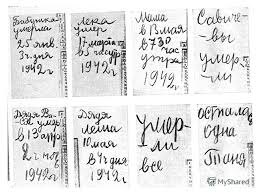 Бабушка
умерла
25 янв.
3 ч. дня
1942 г
Лека
умер
17 марта
в 5 час утр
1942 г
Мама
в 13 мая
в 7 30
час
утра
1942 г
Савиче-
вы
умер-
ли
Дядя Ва-
ся умер
в 13 апр
2 ч ноч
1942 г
Дядя
Леша
10 мая
в 4 ч дня
1942 г
умер-
ли
все
остала
одна
Таня
MyShared